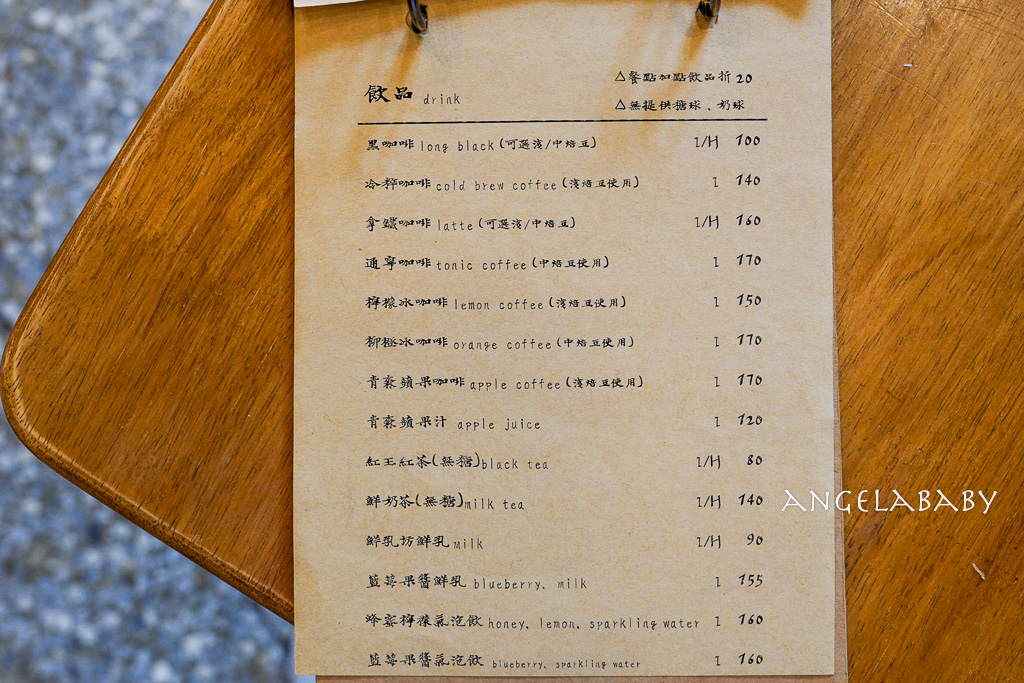 飲品 drink
△餐點加點飲品折20
△無提供糖球、奶球
黑咖啡 long black (可選淺/中焙豆) I/H 100
冷粹咖啡 cold brew coffee (淺焙豆使用) I 140
拿鐵咖啡 latte (可選淺/中焙豆) I/H 160
通寧咖啡 tonic coffee (中焙豆使用) I 170
檸檬冰咖啡 lemon coffee (淺焙豆使用) I 150
柳橙冰咖啡 orange coffee (中焙豆使用) I 170
青森蘋果咖啡 apple coffee (淺焙豆使用) I 170
青森蘋果汁 apple juice I 120
紅玉紅茶(無糖) black tea I/H 80
鮮奶茶(無糖) milk tea I/H 140
鮮乳坊鮮乳 milk I/H 90
藍莓果醬鮮乳 blueberry、milk I 155
蜂蜜檸檬氣泡飲 honey、lemon、sparkling water I 160
藍莓果醬氣泡飲 blueberry、sparkling water I 160
ANGELABABY